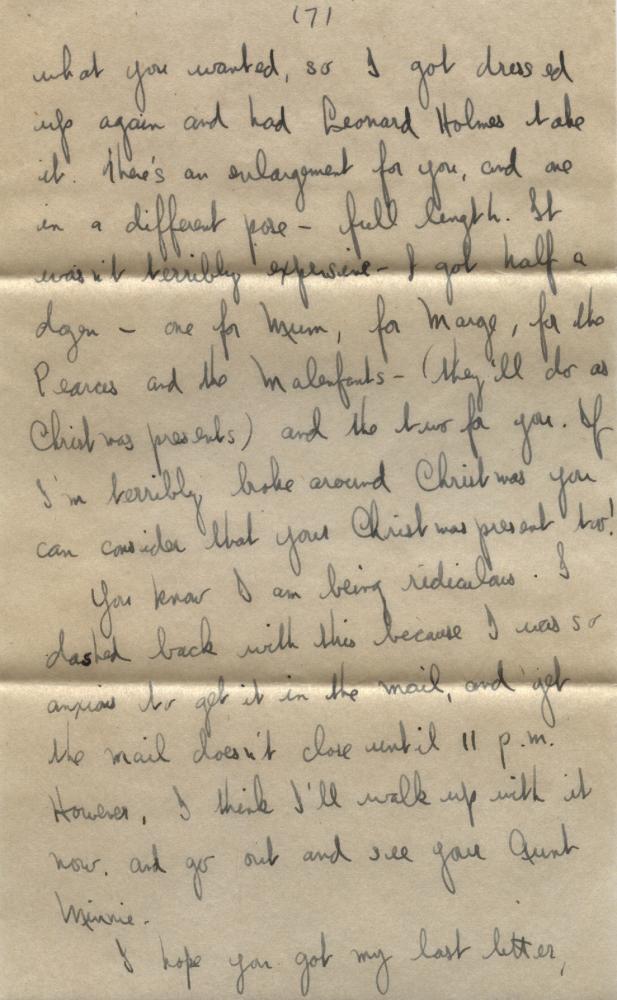 (7)
what you wanted, so I got dressed
up again and had Leonard Holmes take
it. There's an enlargement for you, and one
in a different pose - full length. It
wasn't terribly expensive - I got half a
dozen - one for Mum, for Marge, for the
Pearces and the Malenfants - (they'll do as
Christmas presents) and the two for you. If
I'm terribly broke around Christmas you
can consider that your Christmas present too!
You know I am being ridiculous. I
dashed back with this because I was so
anxious to get it in the mail, and yet
the mail doesn't close until 11 p.m.
However, I think I'll walk up with it
now, and go out and see your Aunt
Minnie.
I hope you got my last letter,